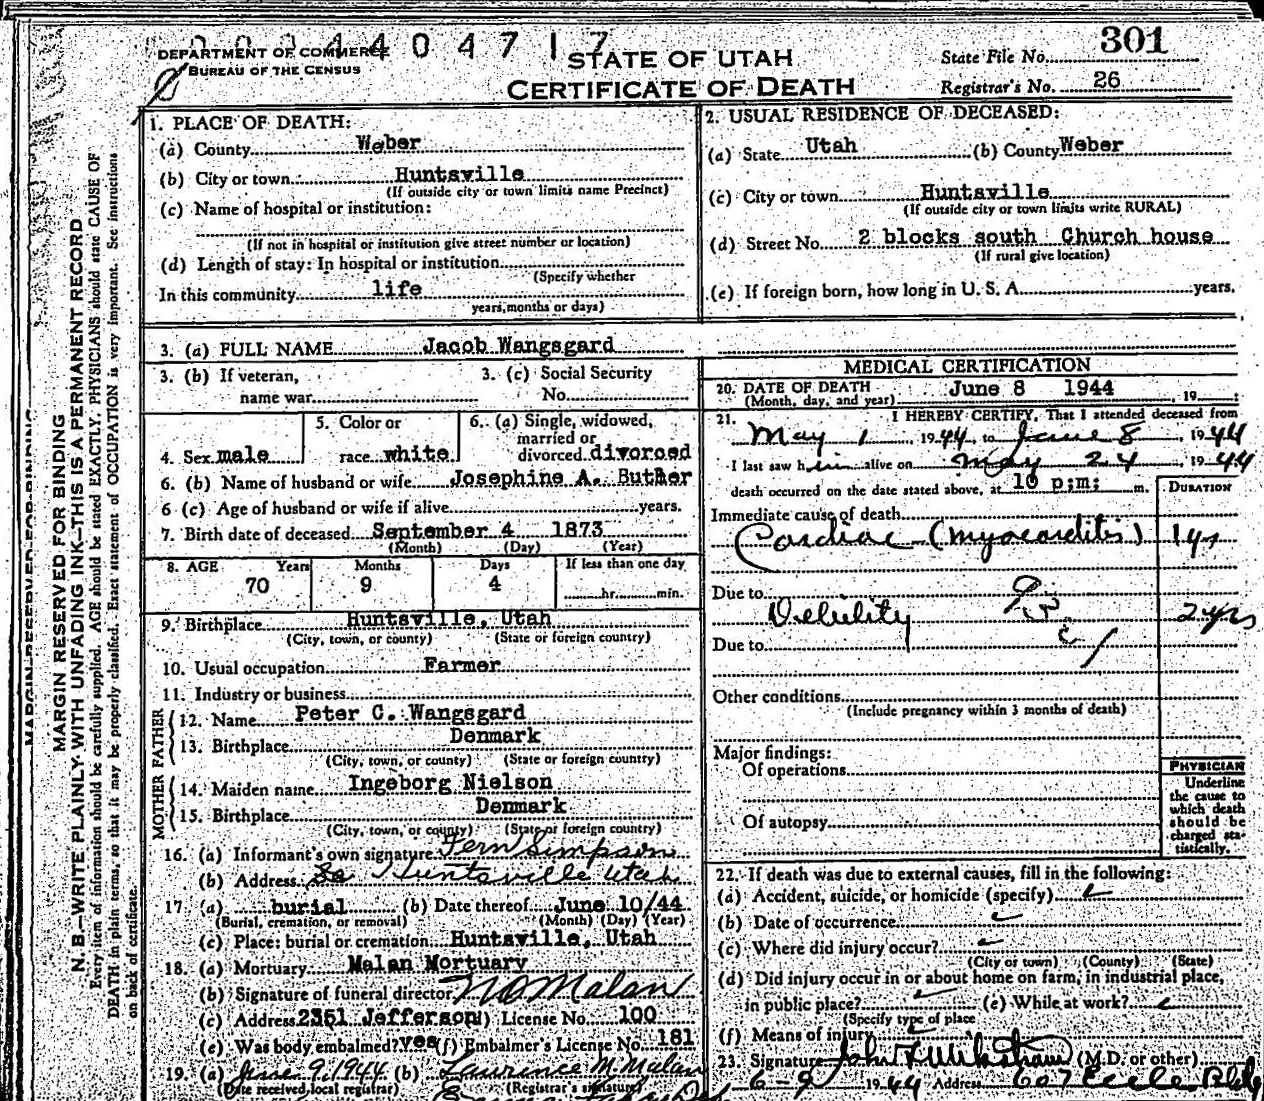 0 0 4 4 0 4 7 1 7
DEPARTMENT OF COMMERCE
BUREAU OF THE CENSUS
STATE OF UTAH
CERTIFICATE OF DEATH
State File No. 301
Registrar's No. 26
MARGIN RESERVED FOR BINDING
N. B.—WRITE PLAINLY WITH UNFADING INK—THIS IS A PERMANENT RECORD
Every item of information should be carefully supplied. AGE should be stated EXACTLY. PHYSICIANS should state CAUSE OF
DEATH in plain terms, so that it may be properly classified. Exact statement of OCCUPATION is very important. See instructions
on back of certificate.
1. PLACE OF DEATH:
(a) County Weber
(b) City or town Huntsville
(If outside city or town limits name Precinct)
(c) Name of hospital or institution:
(If not in hospital or institution give street number or location)
(d) Length of stay: In hospital or institution
(Specify whether
In this community life
years, months or days)
2. USUAL RESIDENCE OF DECEASED:
(a) State Utah (b) County Weber
(c) City or town Huntsville
(If outside city or town limits write RURAL)
(d) Street No. 2 blocks south Church house
(If rural give location)
(e) If foreign born, how long in U. S. A. years.
3. (a) FULL NAME Jacob Wangsgard
3. (b) If veteran, 3. (c) Social Security
name war No.
4. Sex male
5. Color or
race white
6. (a) Single, widowed,
married or
divorced divorced
6. (b) Name of husband or wife Josephine A. Buther
6 (c) Age of husband or wife if alive years.
7. Birth date of deceased September 4 1873
(Month) (Day) (Year)
8. AGE Years Months Days If less than one day
70 9 4 hr. min.
9. Birthplace Huntsville, Utah
(City, town, or county) (State or foreign country)
10. Usual occupation Farmer
11. Industry or business
FATHER
12. Name Peter C. Wangsgard
13. Birthplace Denmark
(City, town, or county) (State or foreign country)
MOTHER
14. Maiden name Ingeborg Nielson
15. Birthplace Denmark
(City, town, or county) (State or foreign country)
16. (a) Informant's own signature Fern Simpson
(b) Address Huntsville Utah
17. (a) burial (b) Date thereof June 10/44
(Burial, cremation, or removal) (Month) (Day) (Year)
(c) Place: burial or cremation Huntsville, Utah
18. (a) Mortuary Malan Mortuary
(b) Signature of funeral director N O Malan
(c) Address 2351 Jefferson (d) License No. 100
(e) Was body embalmed? yes (f) Embalmer's License No. 181
19. (a) June 9, 1944 (b) Laurence M. Malan
(Date received local registrar) (Registrar's signature)
MEDICAL CERTIFICATION
20. DATE OF DEATH June 8 1944
(Month, day, and year) , 19 :
21. I HEREBY CERTIFY, That I attended deceased from
May 1, 1944, to June 8, 1944
I last saw him alive on May 24, 1944
death occurred on the date stated above, at 10 p;m; m.
DURATION
Immediate cause of death
Cardiac (myocarditis) 1 yr
Due to
Debility 2 yrs
Due to
Other conditions
(Include pregnancy within 3 months of death)
Major findings:
Of operations
Of autopsy
PHYSICIAN
Underline
the cause to
which death
should be
charged sta-
tistically.
22. If death was due to external causes, fill in the following:
(a) Accident, suicide, or homicide (specify)
(b) Date of occurrence
(c) Where did injury occur?
(City or town) (County) (State)
(d) Did injury occur in or about home on farm, in industrial place,
in public place? (e) While at work?
(Specify type of place
(f) Means of injury
23. Signature John (M.D. or other)
6-9 1944 Address 607 Eccles Bldg